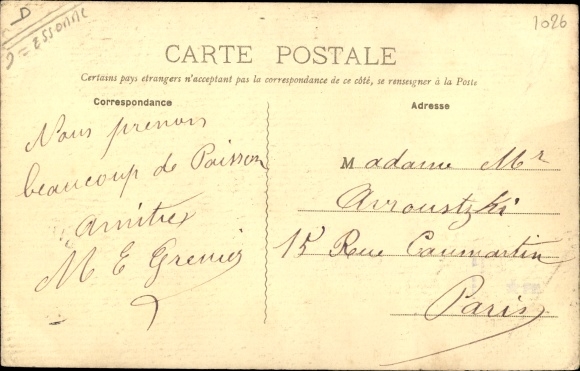 D
D = ESSONNE
1026
CARTE POSTALE
Certains pays etrangers n'acceptant pas la correspondance de ce côté, se renseigner à la Poste
Correspondance
Adresse
Nous prenons
beaucoup de Poisson
amitiés
M E Grenier
Madame Mr
Avroustzki
15 Rue Caumartin
Paris